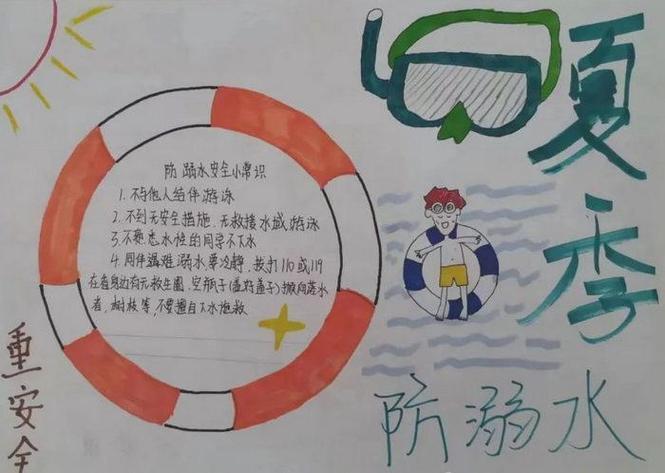 夏季
防溺水
防 水安全小常识
1. 不与他人结伴游泳
2. 不到无安全措施、无救援水域游泳
3. 不熟悉水性的同学不下水
4. 同伴遇难溺水,要冷静,拨打110或119
在看身边有无救生圈,空瓶子(盖好盖子)抛向落水
者,树枝等,不要擅自下水施救
重安全